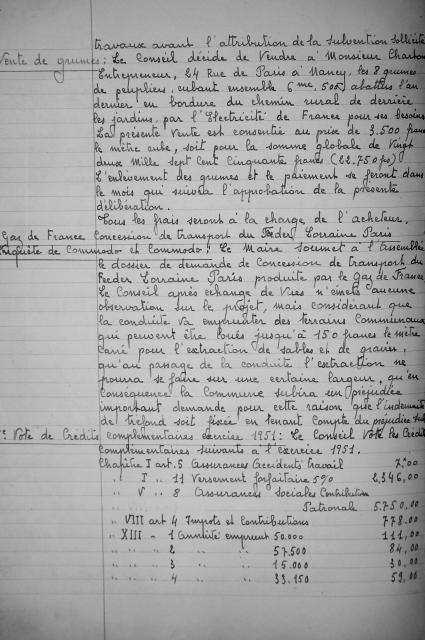 travaux avant l'attribution de la subvention sollicitée
Vente de grumes : Le Conseil décide de Vendre à Monsieur
Entrepreneur, 24 Rue de Paris à Nancy, les 8 grumes
de peupliers, cubant ensemble 6 mc, 500, abattus l'an
dernier en bordure du chemin rural de derrière
les jardins, par l'Electricité de France pour ses besoins
La présente Vente est consentie au prix de 3.500 francs
le mètre cube, soit pour la somme globale de Vingt
deux mille sept cent cinquante francs (22.750 frs)
L'enlèvement des grumes et le paiement se feront dans
le mois qui suivra l'approbation de la présente
délibération.
Tous les frais seront à la charge de l'acheteur.
Gaz de France Concession de transport du Feeder Lorraine Paris
Enquête de Commodo et Commodo : Le Maire soumet à l'Assemblée
le dossier de demande de Concession de transport du
Feeder Lorraine Paris produite par le Gaz de France
Le Conseil après échange de Vues n'émet aucune
observation sur le projet, mais considérant que
la conduite va emprunter des terrains Communaux
qui peuvent être loués jusqu'à 150 francs le mètre
carré pour l'extraction de sables et de graviers,
qu'au passage de la conduite l'extraction ne
pourra se faire sur une certaine largeur, qu'en
conséquence la Commune subira un préjudice
important demande pour cette raison que l'indemnité
de tréfond soit fixée en tenant compte du préjudice subi
Vote de Crédits complémentaires exercice 1951 : Le Conseil Vote les Crédits
complémentaires suivants à l'exercice 1951.
Chapitre I art. 5 Assurances Accidents travail 7,00
" I " 11 Versement forfaitaire 5% 2,346,00
" V " 8 Assurances Sociales Contribution
Patronale 5.750,00
" VIII art 4 Impots et Contributions 778,00
" XIII " 1 Annuité emprunt 50.000 111,00
" " " 2 " " 57.500 84,00
" " " 3 " " 15.000 30,00
" " " 4 " " 33.150 59,00